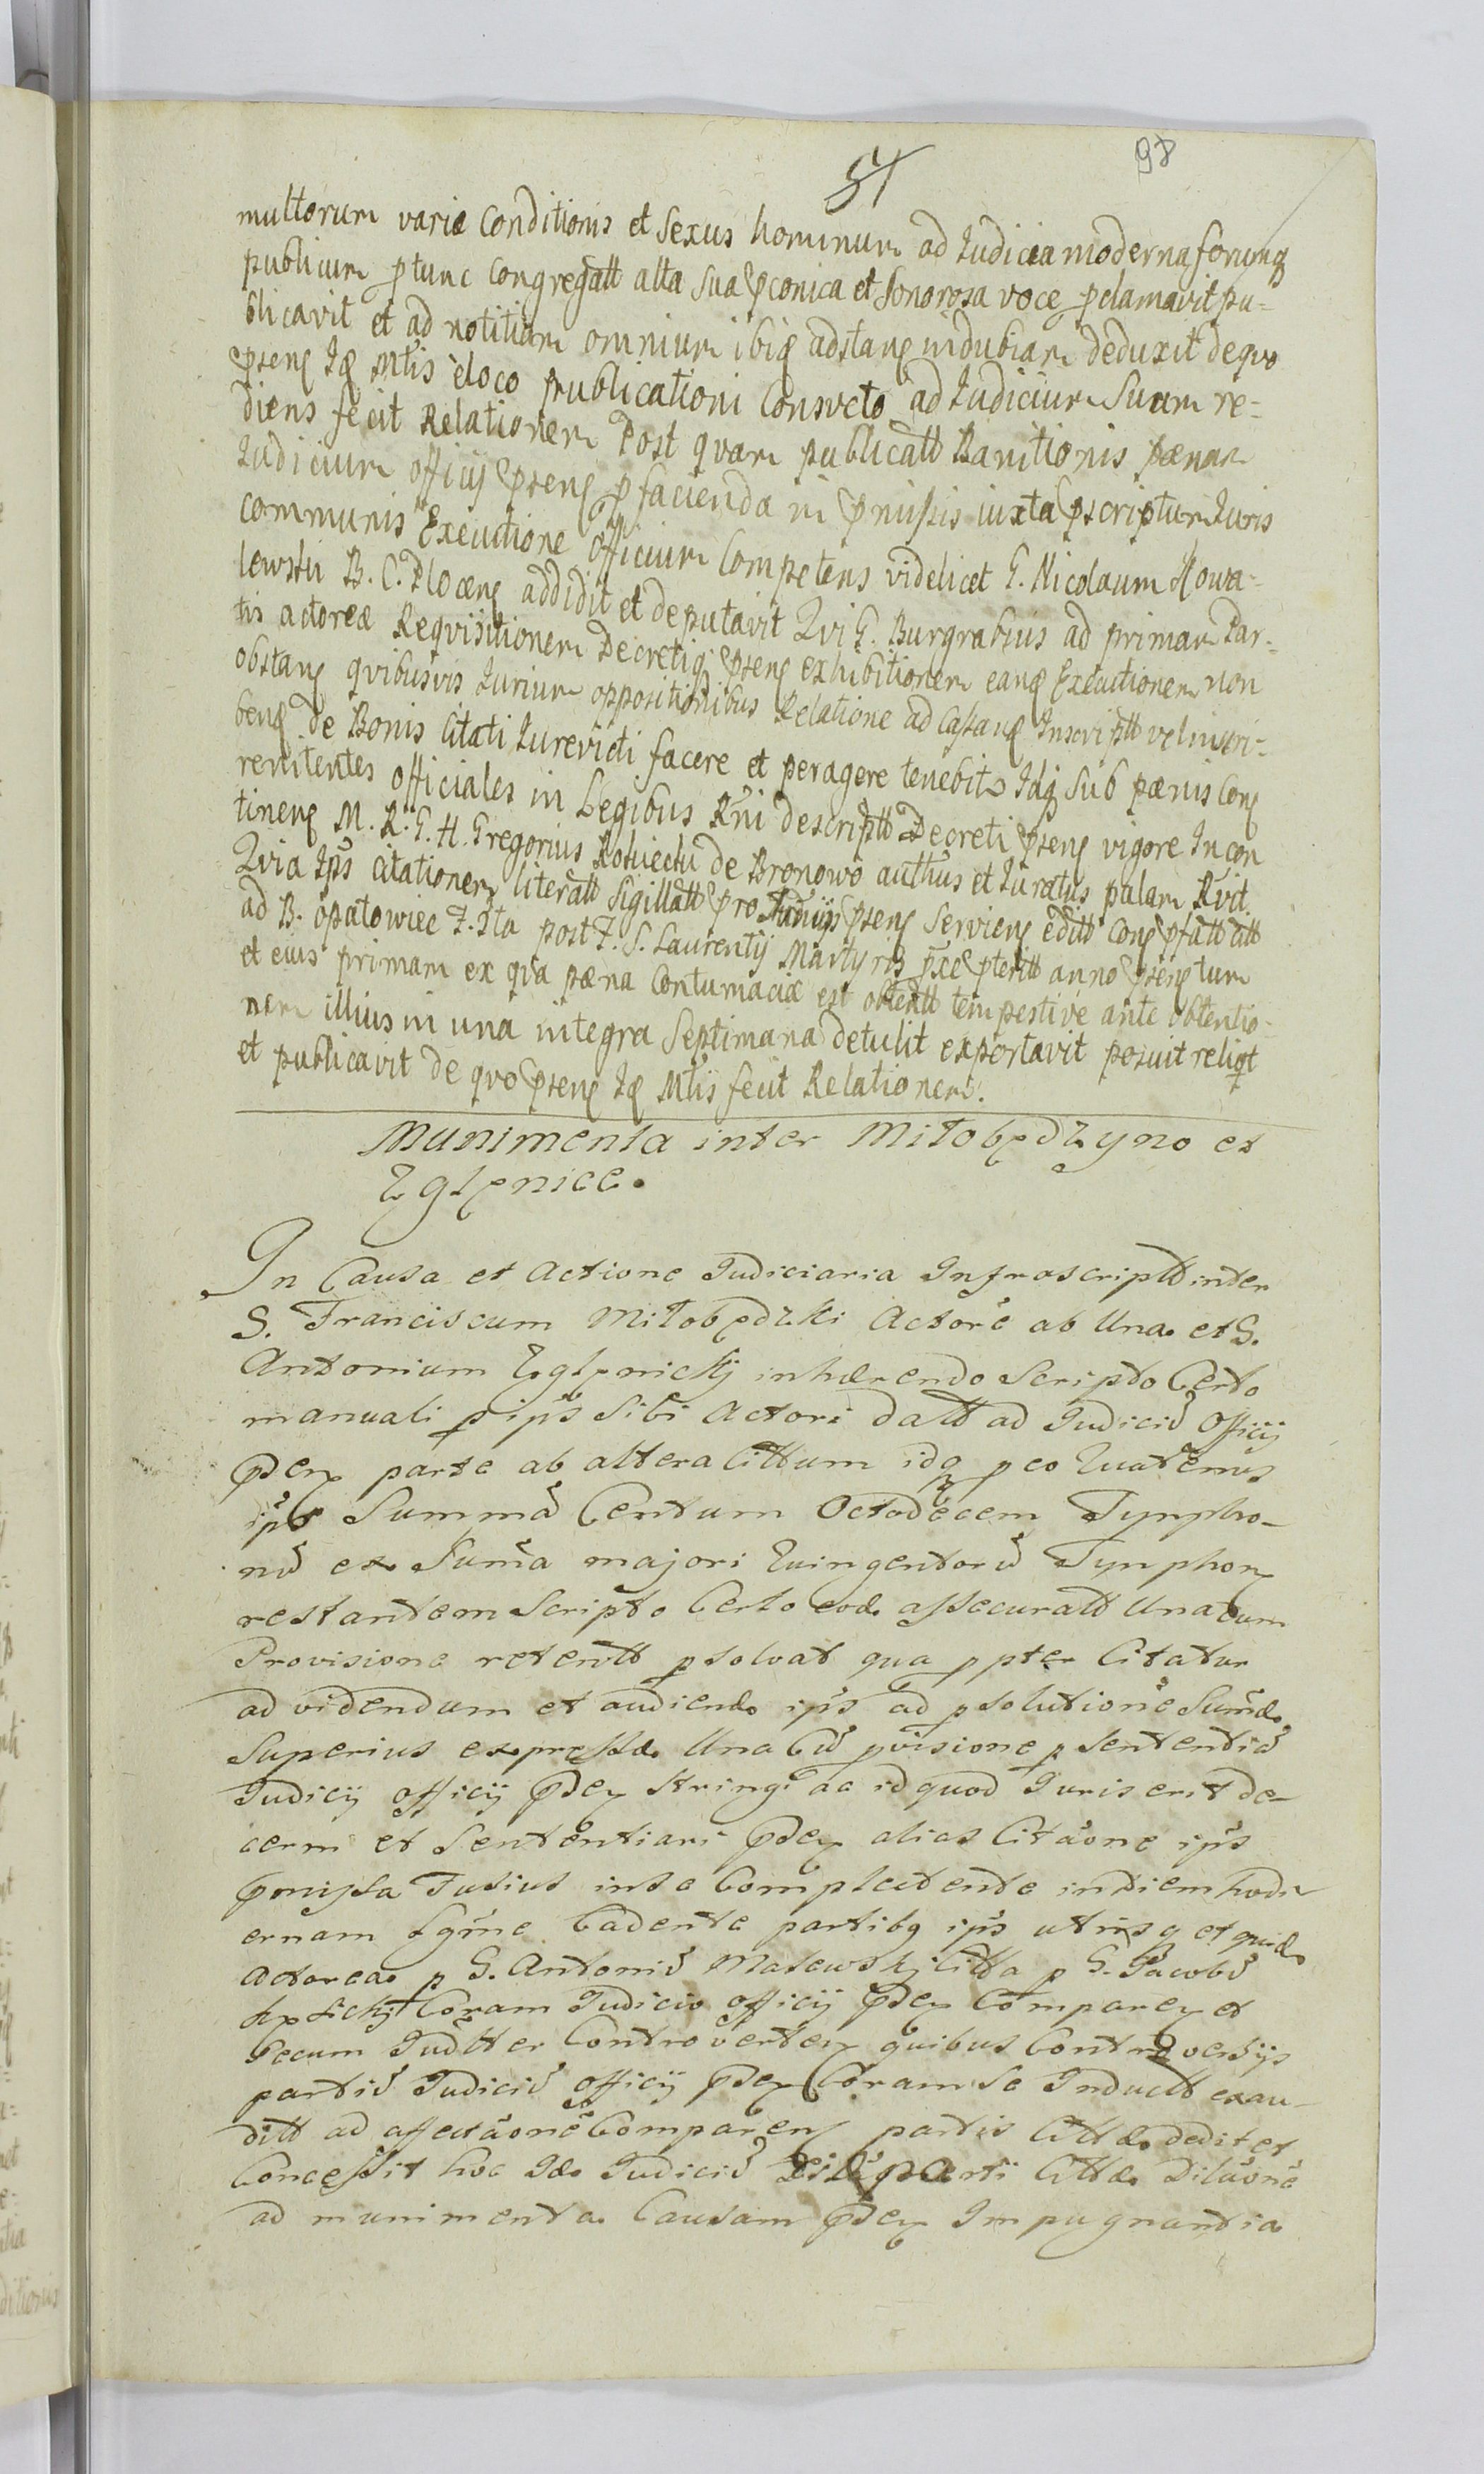 51
98
multorum variæ Conditionis et Sexus hominum ad Iudicia moderna forumq
publicum ptunc Congregatt alta sua pconica et Sonorosa voce pclamavit pu-
blicavit et ad notitiam omnium ibiq adstang indubiam deduxit de quo
pseng Iq Mtis èloco publicationi Consveto ad Iudicium Suum re-
diens fecit Relationem Post qvam publicatt Banitionis pænam
Iudicium officij pseng p facienda in pmissis iuxta pscriptum Iuris
communis Executione officium Competens videlicet G. Nicolaum Kowa-
lewski B. C. Ploceng addidit et deputavit Qvi G. Burgrabius ad primam Par-
tis actoreæ Reqvisitionem Decretiq pseng exhibitionem eanq Executionem non
obstang qvibusvis Iurium oppositionibus Relatione ad Castang Inscriptt velinscri-
beng de Bonis Citati Iurevicti facere et peragere tenebit Idq sub pænis Cong
renitentes officiales in Legibus Rni descriptt Decreti pseng vigore In con
tineng M. R. G. H. Gregorius de Bronowo authus et Iuratus palam Rvit
Qvia Ips Citationem literatt Sigillatt pro pseng Servieng editt Cong pfatt citt
ad B. opatowiec F. Ita post F. S. Laurentij Martyris pxe pteritt anno pseng tum
et eius primam ex qva pæna Contumaciæ est obtentt tempestive ante obtentio-
nem illius in una integra Septimana detulit exportavit posuit reliqt
et publicavit de qvo pseng Iq Mtis fecit Relationem.
Munimenta inter Miłobędzyno et
Zglenice.
In Causa et Actione Iudiciaria Infrascriptt inter
G. Franciscum Miłobędzki Actorē ab Una et G.
Antonium Zglenickij inhærendo Scripto Certo
manuali p ips Sibi Actori datt ad Iudiciū Officij
psen parte ab altera Cittum idq p eo Quatenus
ips Summā Centum Octodecem Tympho-
nū ex Suma majori Quingentorū Tymphon
restantem Scripto Certo eod assecuratt Unacum
Provisione retentt psolvat qua ppter Citatur
ad videndum et audiend ips ad psolutionē Sumæ
Superius expressæ Una Cū pvisione p Sententiā
Iudicij officij psen stringi ac id quod Iuris erit de-
cerni et Sententiari psen alias Citāone ips
pmissa Fusius in se Complectente in diem hodi-
ernam Lgme Cadente partibq ips utrisq et quid
Actorea p G. Antoniū Malewskij Citta p G. Iacobū
Coram Iudicio officij psen Comparen et
Secum Iudtter Controverten quibus Controversijs
partiū Iudiciū officij psen Coram Se Induct exau-
ditt ad affectāonē Comparen partis Cittæ dedit et
Concessit hoc Id Iudiciū parti Cittæ Dilāonē
ad munimenta Causam psen Impugnantia